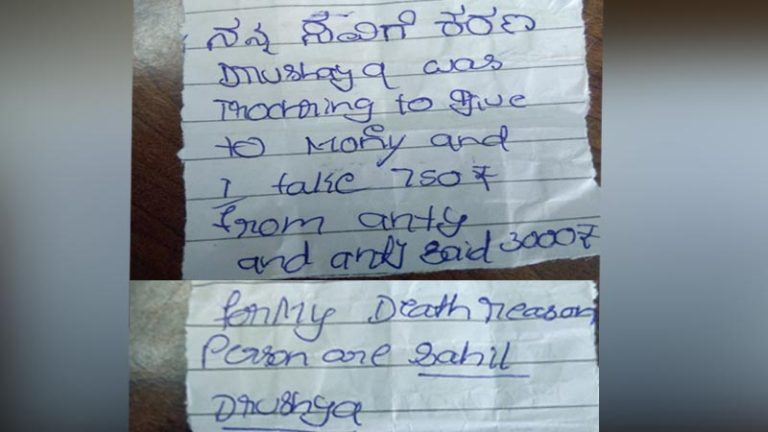 ನನ್ನ ಸಾವಿಗೆ ಕರಣ
Drushya was
Thorning to give
to Mony and
I take 750₹
from anty
and anty said 3000₹
for My Death reason
Person are Sahil
Drushya